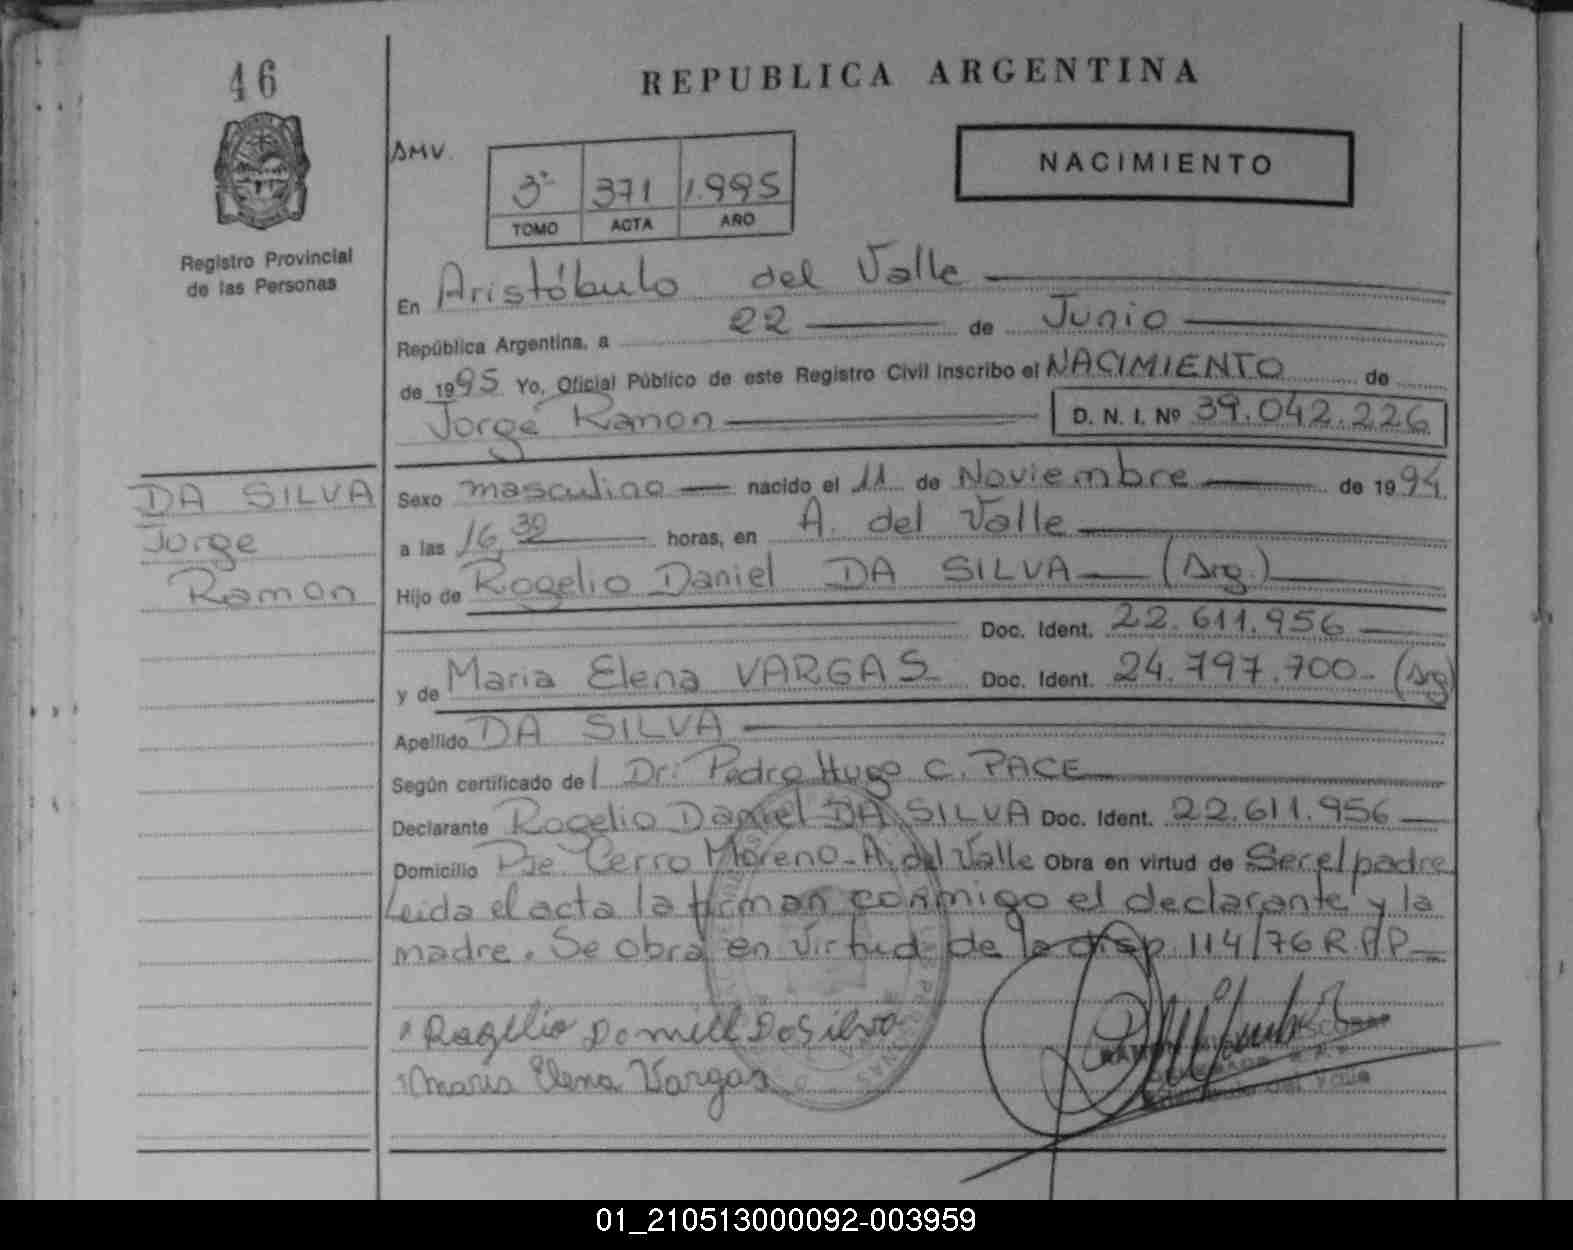 46
REPUBLICA ARGENTINA
AMV.
NACIMIENTO
3º 371 1.995
TOMO ACTA AÑO
Registro Provincial
de las Personas
En Aristóbulo del Valle
República Argentina, a 22 de Junio
de 1995 Yo, Oficial Público de este Registro Civil inscribo el NACIMIENTO de
Jorge Ramon D. N. I. Nº 39.042.226
DA SILVA
Jorge
Ramon
Sexo masculino nacido el 11 de Noviembre de 1994
a las 16,30 horas, en A. del Valle
Hijo de Rogelio Daniel DA SILVA (Arg.)
Doc. Ident. 22.611.956
y de Maria Elena VARGAS Doc. Ident. 24.797.700- (Arg)
Apellido DA SILVA
Según certificado del Dr. Pedro Hugo C. PACE
Declarante Rogelio Daniel DA SILVA Doc. Ident. 22.611.956
Domicilio Pje. Cerro Moreno-A. del Valle Obra en virtud de Ser el padre
Leida el acta la firman conmigo el declarante y la
madre. Se obra en virtud de la disp 114/76 R.P.P
Rogelio Daniel Da Silva
Maria Elena Vargas
01_210513000092-003959